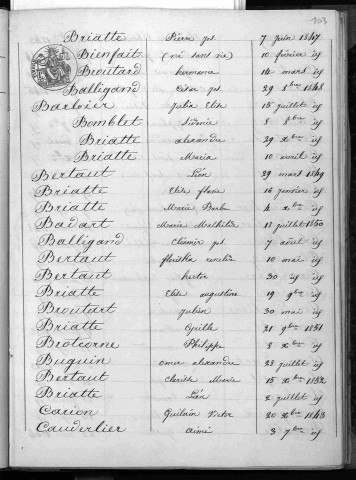 103
Briatte Pierre jh 7 juin 1847
Bienfait (né sans vie) 10 février id
Broutard hermance 14 mars id
Balligand César jh 29 1bre 1848
Barbier Julia Elise 15 juillet id
Bomblet Sidonie 8 8bre id
Briatte alexandre 29 xbre id
Briatte Maria 10 avril id
Bertaut Léon 29 mars 1849
Briatte Elise flore 16 janvier id
Briatte Marie Barbe 4 xbre id
Badart Marie Mathilde 11 juillet 1850
Balligand Casimir jh 7 août id
Bertaut 10 mai id
Bertaut hector 30 id id
Briatte Elise augustine 19 9bre id
Broutart Julien 30 mai id
Briatte Cyrille 21 9bre 1851
Brotcorne Philippe 3 xbre id
Buguin omer alexandre 23 juillet id
Bertaut Clarisse Marie 15 xbre 1852
Briatte Léon 2 juillet id
Carion Guilain Victor 20 xbre 1843
Cauderlier aimé 3 7bre id